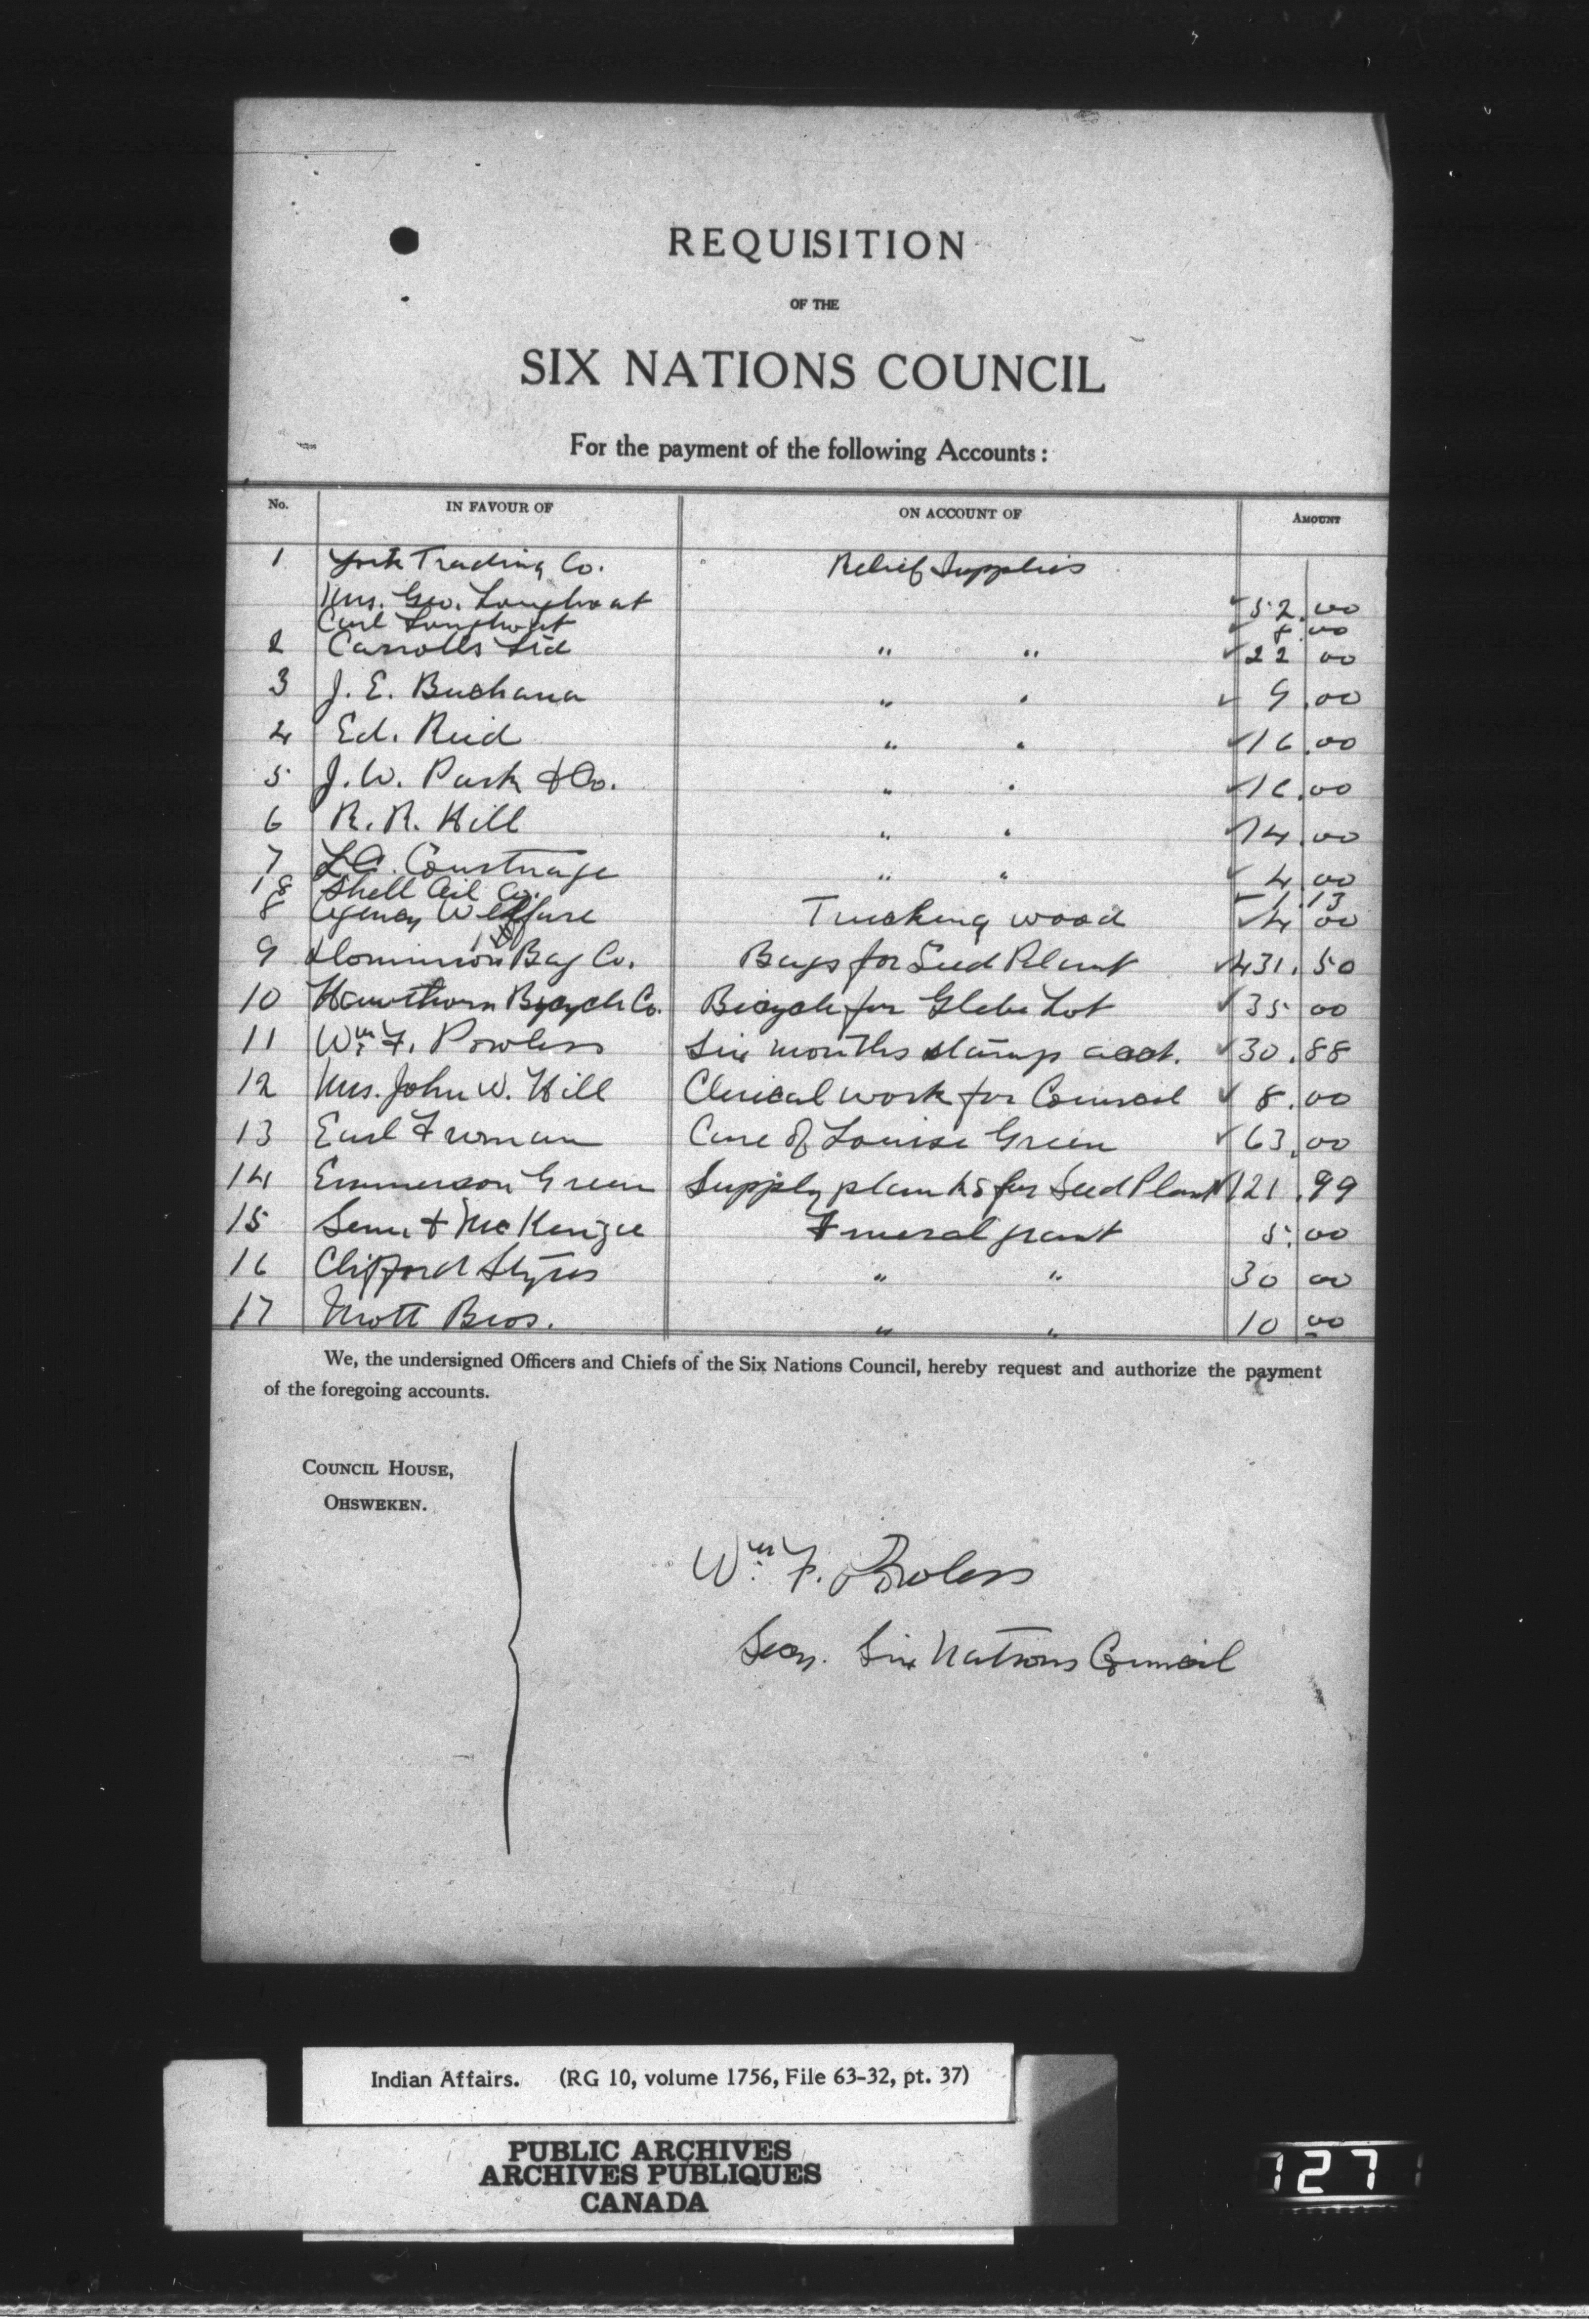 REQUISITION
OF THE
SIX NATIONS COUNCIL
For the payment of the following Accounts:
No. IN FAVOUR OF ON ACCOUNT OF AMOUNT
1 York Trading Co. Relief Supplies
Mrs. Geo. Longboat 52.00
Carl Longboat 8.00
2 Carrolls Ltd " " 22 00
3 J. E. Buchana " " 9.00
4 Ed. Reid " " 16.00
5 J. W. Park & Co. " " 16.00
6 R. R. Hill " " 14.00
7 " " 4.00
18 Shell Oil Co. 1.13
8 Agency Welfare Trucking wood 4 00
9 Dominion Bag Co. Bags for Seed Plant 431.50
10 Hawthorn Bicycle Co. Bicycle for Glebe Lot 35 00
11 Wm. F. Powless Six months stamp acct. 30.88
12 Mrs. John W. Hill Clerical work for Council 8.00
13 Earl Froman Care of Louise Green 63.00
14 Emmerson Green Supply planks for Seed Plant 121.99
15 & McKenzie Funeral grant 5.00
16 Clifford Styres " " 30 00
17 Mott Bros. " " 10 00
We, the undersigned Officers and Chiefs of the Six Nations Council, hereby request and authorize the payment
of the foregoing accounts.
COUNCIL HOUSE,
OHSWEKEN.
Wm. F. Powless
Secy. Six Nations Council
Indian Affairs. (RG 10, volume 1756, File 63-32, pt. 37)
PUBLIC ARCHIVES
ARCHIVES PUBLIQUES
CANADA
127